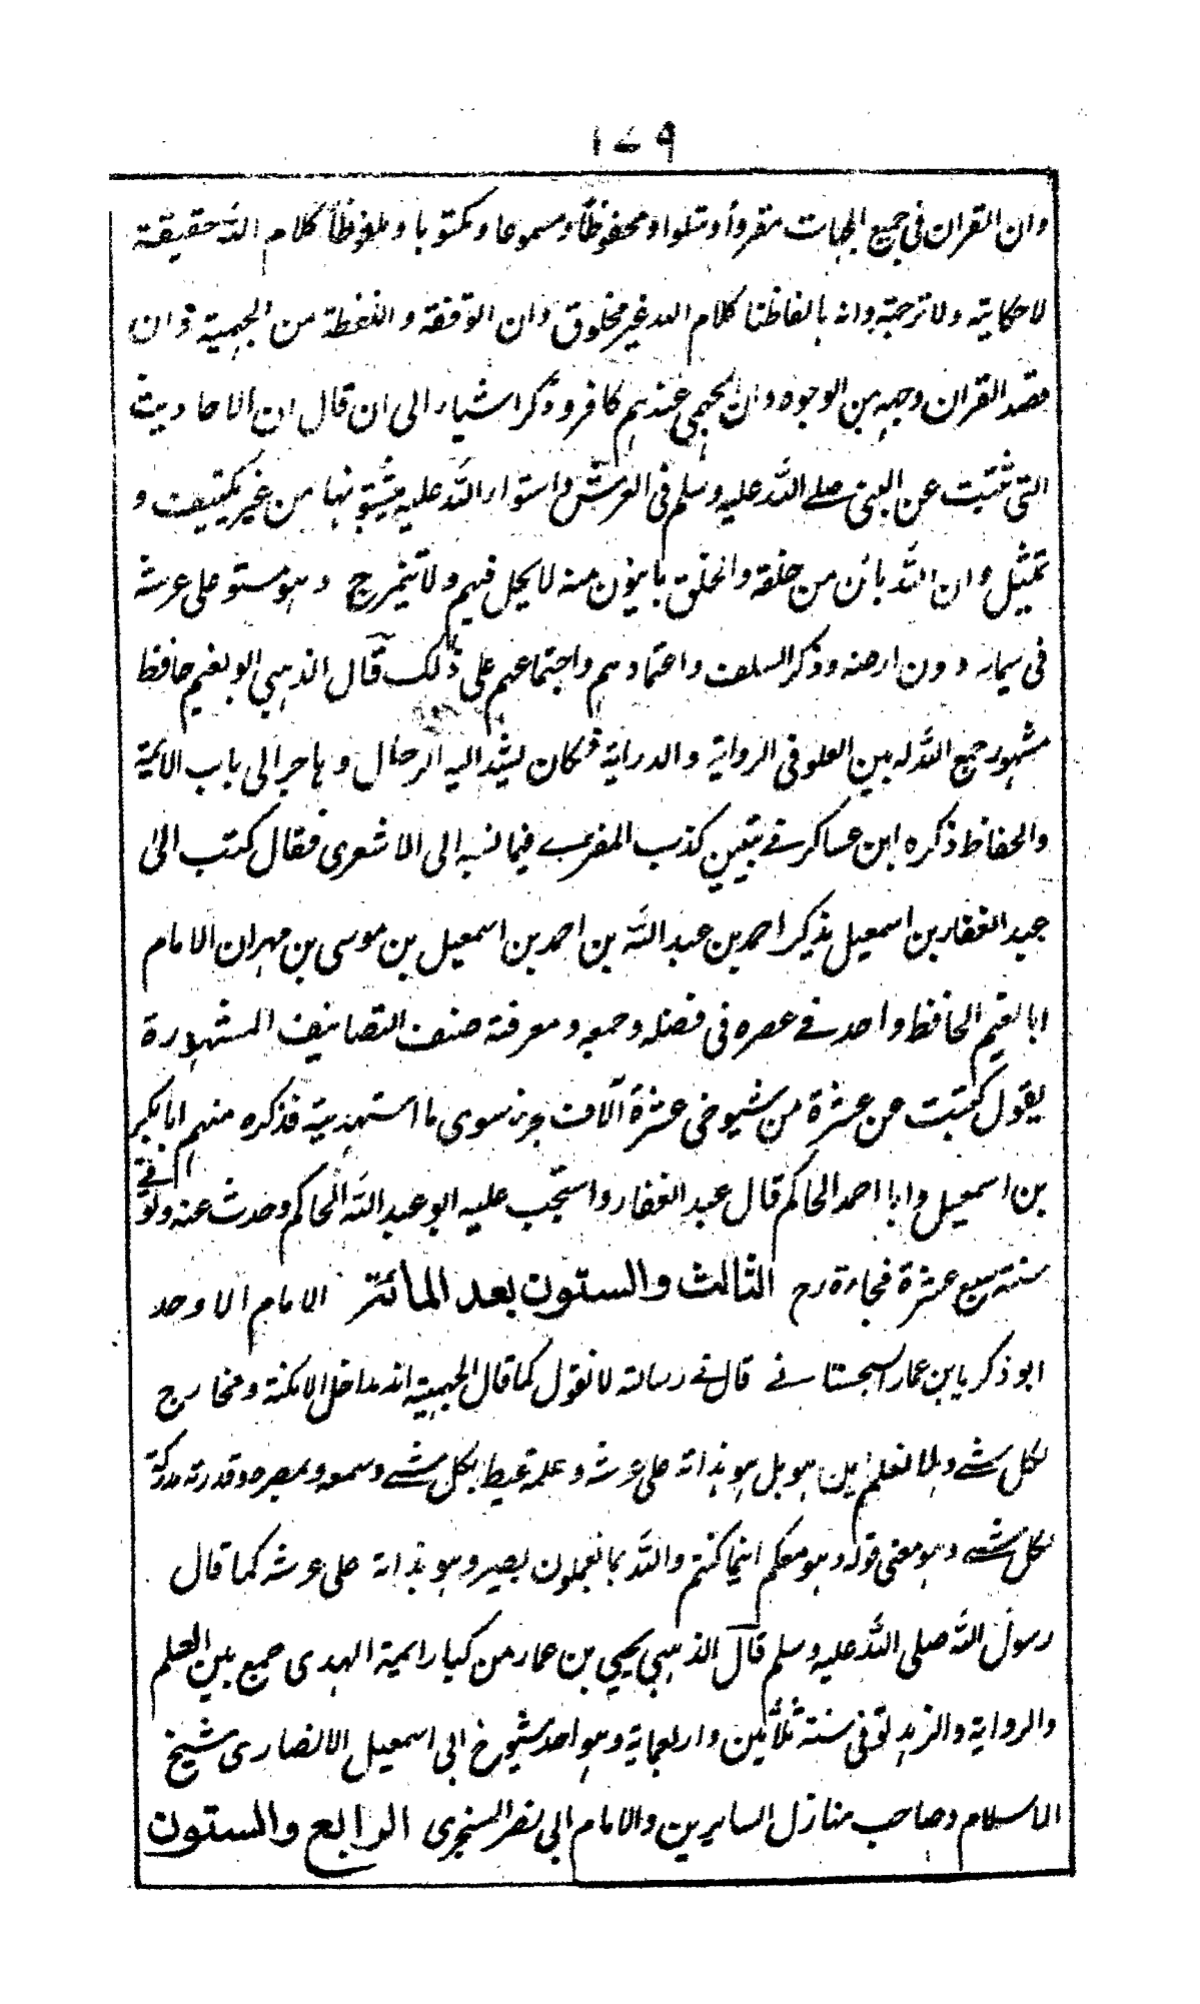 ١٧٩
وان القران فى جميع الجهات مقروأ ومتلوا ومحفوظاً ومسموعا ومكتوبا وملفوظاً كلام اللّه حقيقة
لا حكاية ولا ترجمة وانه بالفاظنا كلام الله غير مخلوق وان الواقفة واللفظة من الجهمية وان
قصد القران وجهه من الوجوه وان الجهمى عندهم كافر وذكر اشياء الى ان قال ان الاحاديث
التى ثبتت عن النبى صلے اللّه عليه وسلم فى العرش واستواء اللّه عليه يثبتونها من غير تكييف و
تمثيل وان اللّه بائن من خلقه والخلق باينون منه لا يحل فيهم ولا يمتزج وهو مستو على عرشه
فى سمائه دون ارضه وذكر السلف واعتمادهم واجتماعهم على ذلك قال الذهبى ابو نعيم حافظ
مشهور جمع اللّه له بين العلو فى الرواية والدراية فكان يشد اليه الرحال وهاجر الى باب الائمة
والحفاظ ذكره ابن عساكر فے تبيين كذب المفترے فيما نسبه الى الاشعرى فقال كتب الىٰ
عبد الغفار بن اسمعيل يذكر احمد بن عبد اللّه بن احمد بن اسمعيل بن موسى بن مهران الامام
ابا نعيم الحافظ واحد فے عصره فى فضله وجمعه ومعرفة صنف التصانيف المشهورة
يقول كتبت عن عشرة من شيوخى عشرة آلاف جزء سوى ما استهدية فذكره منهم ابا بكر
بن اسمعيل وابا احمد الحاكم قال عبد الغفار وانتخب عليه ابو عبد اللّه الحاكم وحدث عنه وتوفے
سنة سبع عشرة فجاءة رح الثالث والستون بعد المائتر الامام الاوحد
ابو ذكريا بن عمار السجستانے قال فے رسالته لا نقول كما قال الجهمية انه مداخل الامكنة ومخارج
لكل شے ولا نعلم اين هو بل هو بذاته على عرشه وعلمه محيط بكل شے وسمعه وبصره وقدرته مدركة
لكل شے وهو معنى قوله وهو معكم اينما كنتم واللّه بما تعملون بصير وهو بذاته على عرشه كما قال
رسول اللّه صلى اللّه عليه وسلم قال الذهبى يحيى بن عمار من كبار ائمة الهدى جمع بين العلم
والرواية والزهد توفى سنة ثلاثين واربعماية وهو احد شيوخ ابى اسمعيل الانصارى شيخ
الاسلام وصاحب منازل السايرين والامام ابى نصر السنجرى الرابع والستون